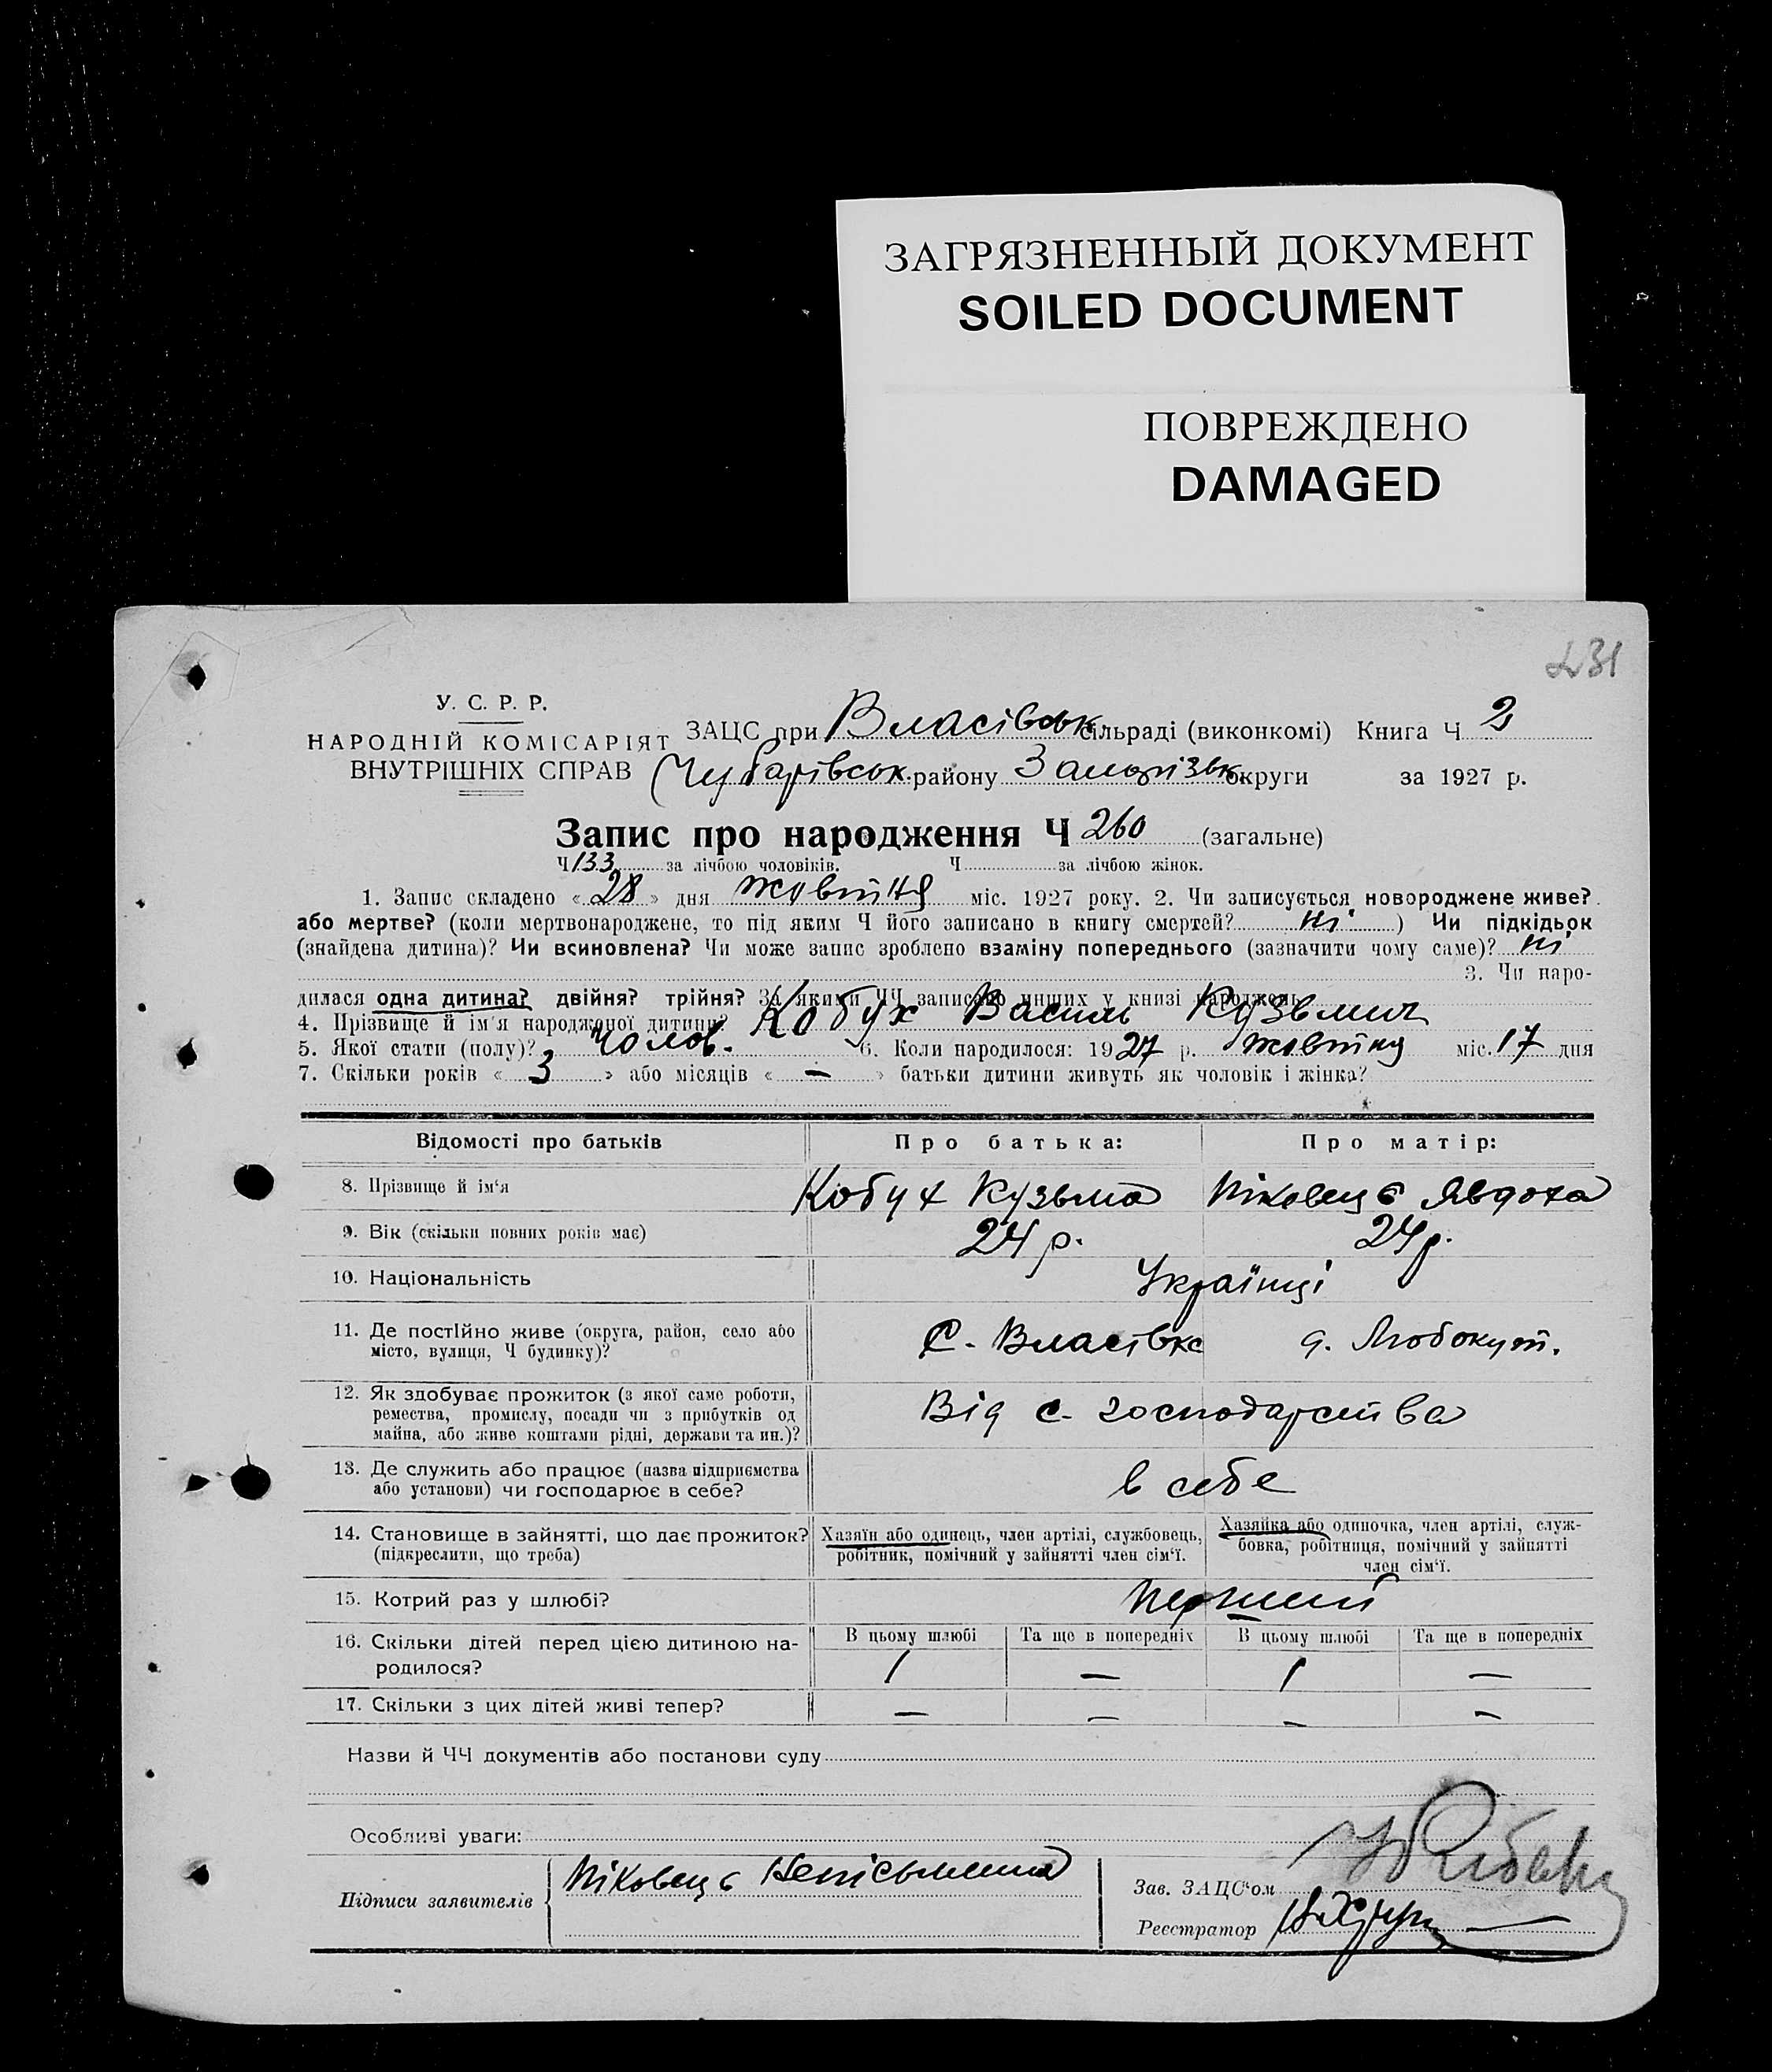 ЗАГРЯЗНЕННЫЙ ДОКУМЕНТ
SOILED DOCUMENT
ПОВРЕЖДЕНО
DAMAGED
231
У. С. Р. Р.
НАРОДНІЙ КОМІСАРІЯТ
ВНУТРІШНІХ СПРАВ
ЗАЦС при Власівськ. сільраді (виконкомі) Книга Ч 2
Чубарівськ. району Запорізьк. округи за 1927 р.
Запис про народження Ч 260 (загальне)
Ч 133 за лічбою чоловіків. Ч за лічбою жінок.
1. Запис складено « 28 » дня жовтня міс. 1927 року. 2. Чи записується новороджене живе?
або мертве? (коли мертвонароджене, то під яким Ч його записано в книгу смертей? ні ) Чи підкідьок
(знайдена дитина)? Чи всиновлена? Чи може запис зроблено взаміну попереднього (зазначити чому саме)? ні
3. Чи наро-
дилася одна дитина? двійня? трійня? За якими ЧЧ записано инших у книзі народжень
4. Прізвище й ім'я народженої дитини? Кобух Василь Кузьмич
5. Якої стати (полу)? Чолов. 6. Коли народилося: 1927 р. жовтня міс. 17 дня
7. Скільки років « 3 » або місяців « — » батьки дитини живуть як чоловік і жінка?
Відомості про батьків Про батька: Про матір:
8. Прізвище й ім'я Кобух Кузьма Явдоха
9. Вік (скільки повних років має) 24 р. 24 р.
10. Національність Українці
11. Де постійно живе (округа, район, село або
місто, вулиця, Ч будинку)? С. Власівка
12. Як здобуває прожиток (з якої саме роботи,
ремества, промислу, посади чи з прибутків од
майна, або живе коштами рідні, держави та ин.)? Від с. господарства
13. Де служить або працює (назва підприємства
або установи) чи господарює в себе? в себе
14. Становище в зайнятті, що дає прожиток?
(підкреслити, що треба)
Хазяїн або одинець, член артілі, службовець,
робітник, помічний у зайнятті член сім'ї.
Хазяйка або одиночка, член артілі, служ-
бовка, робітниця, помічний у зайнятті
член сім'ї.
15. Котрий раз у шлюбі? перший
16. Скільки дітей перед цією дитиною на-
родилося?
В цьому шлюбі Та ще в попередніх В цьому шлюбі Та ще в попередніх
1 — 1 —
17. Скільки з цих дітей живі тепер? — — — —
Назви й ЧЧ документів або постанови суду
Особливі уваги:
Підписи заявителів
Зав. ЗАЦС'ом
Реєстратор